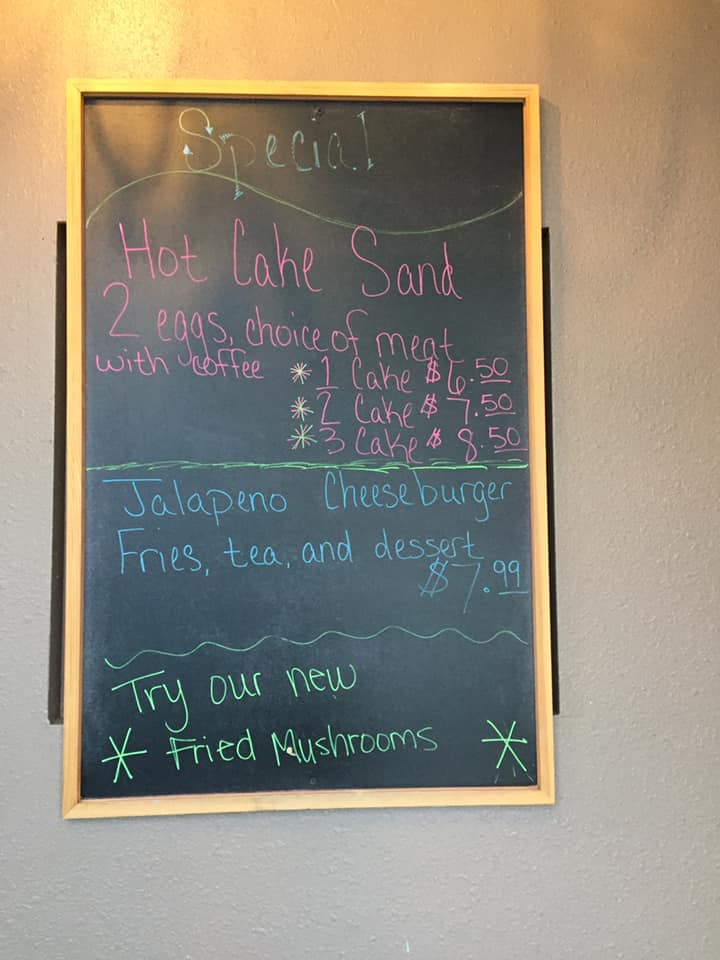 Special
Hot Cake Sand
2 eggs, choice of meat
with coffee * 1 Cake $6.50
* 2 Cake $7.50
* 3 Cake $8.50
Jalapeno Cheeseburger
Fries, tea, and dessert
$7.99
Try our new
* Fried Mushrooms *